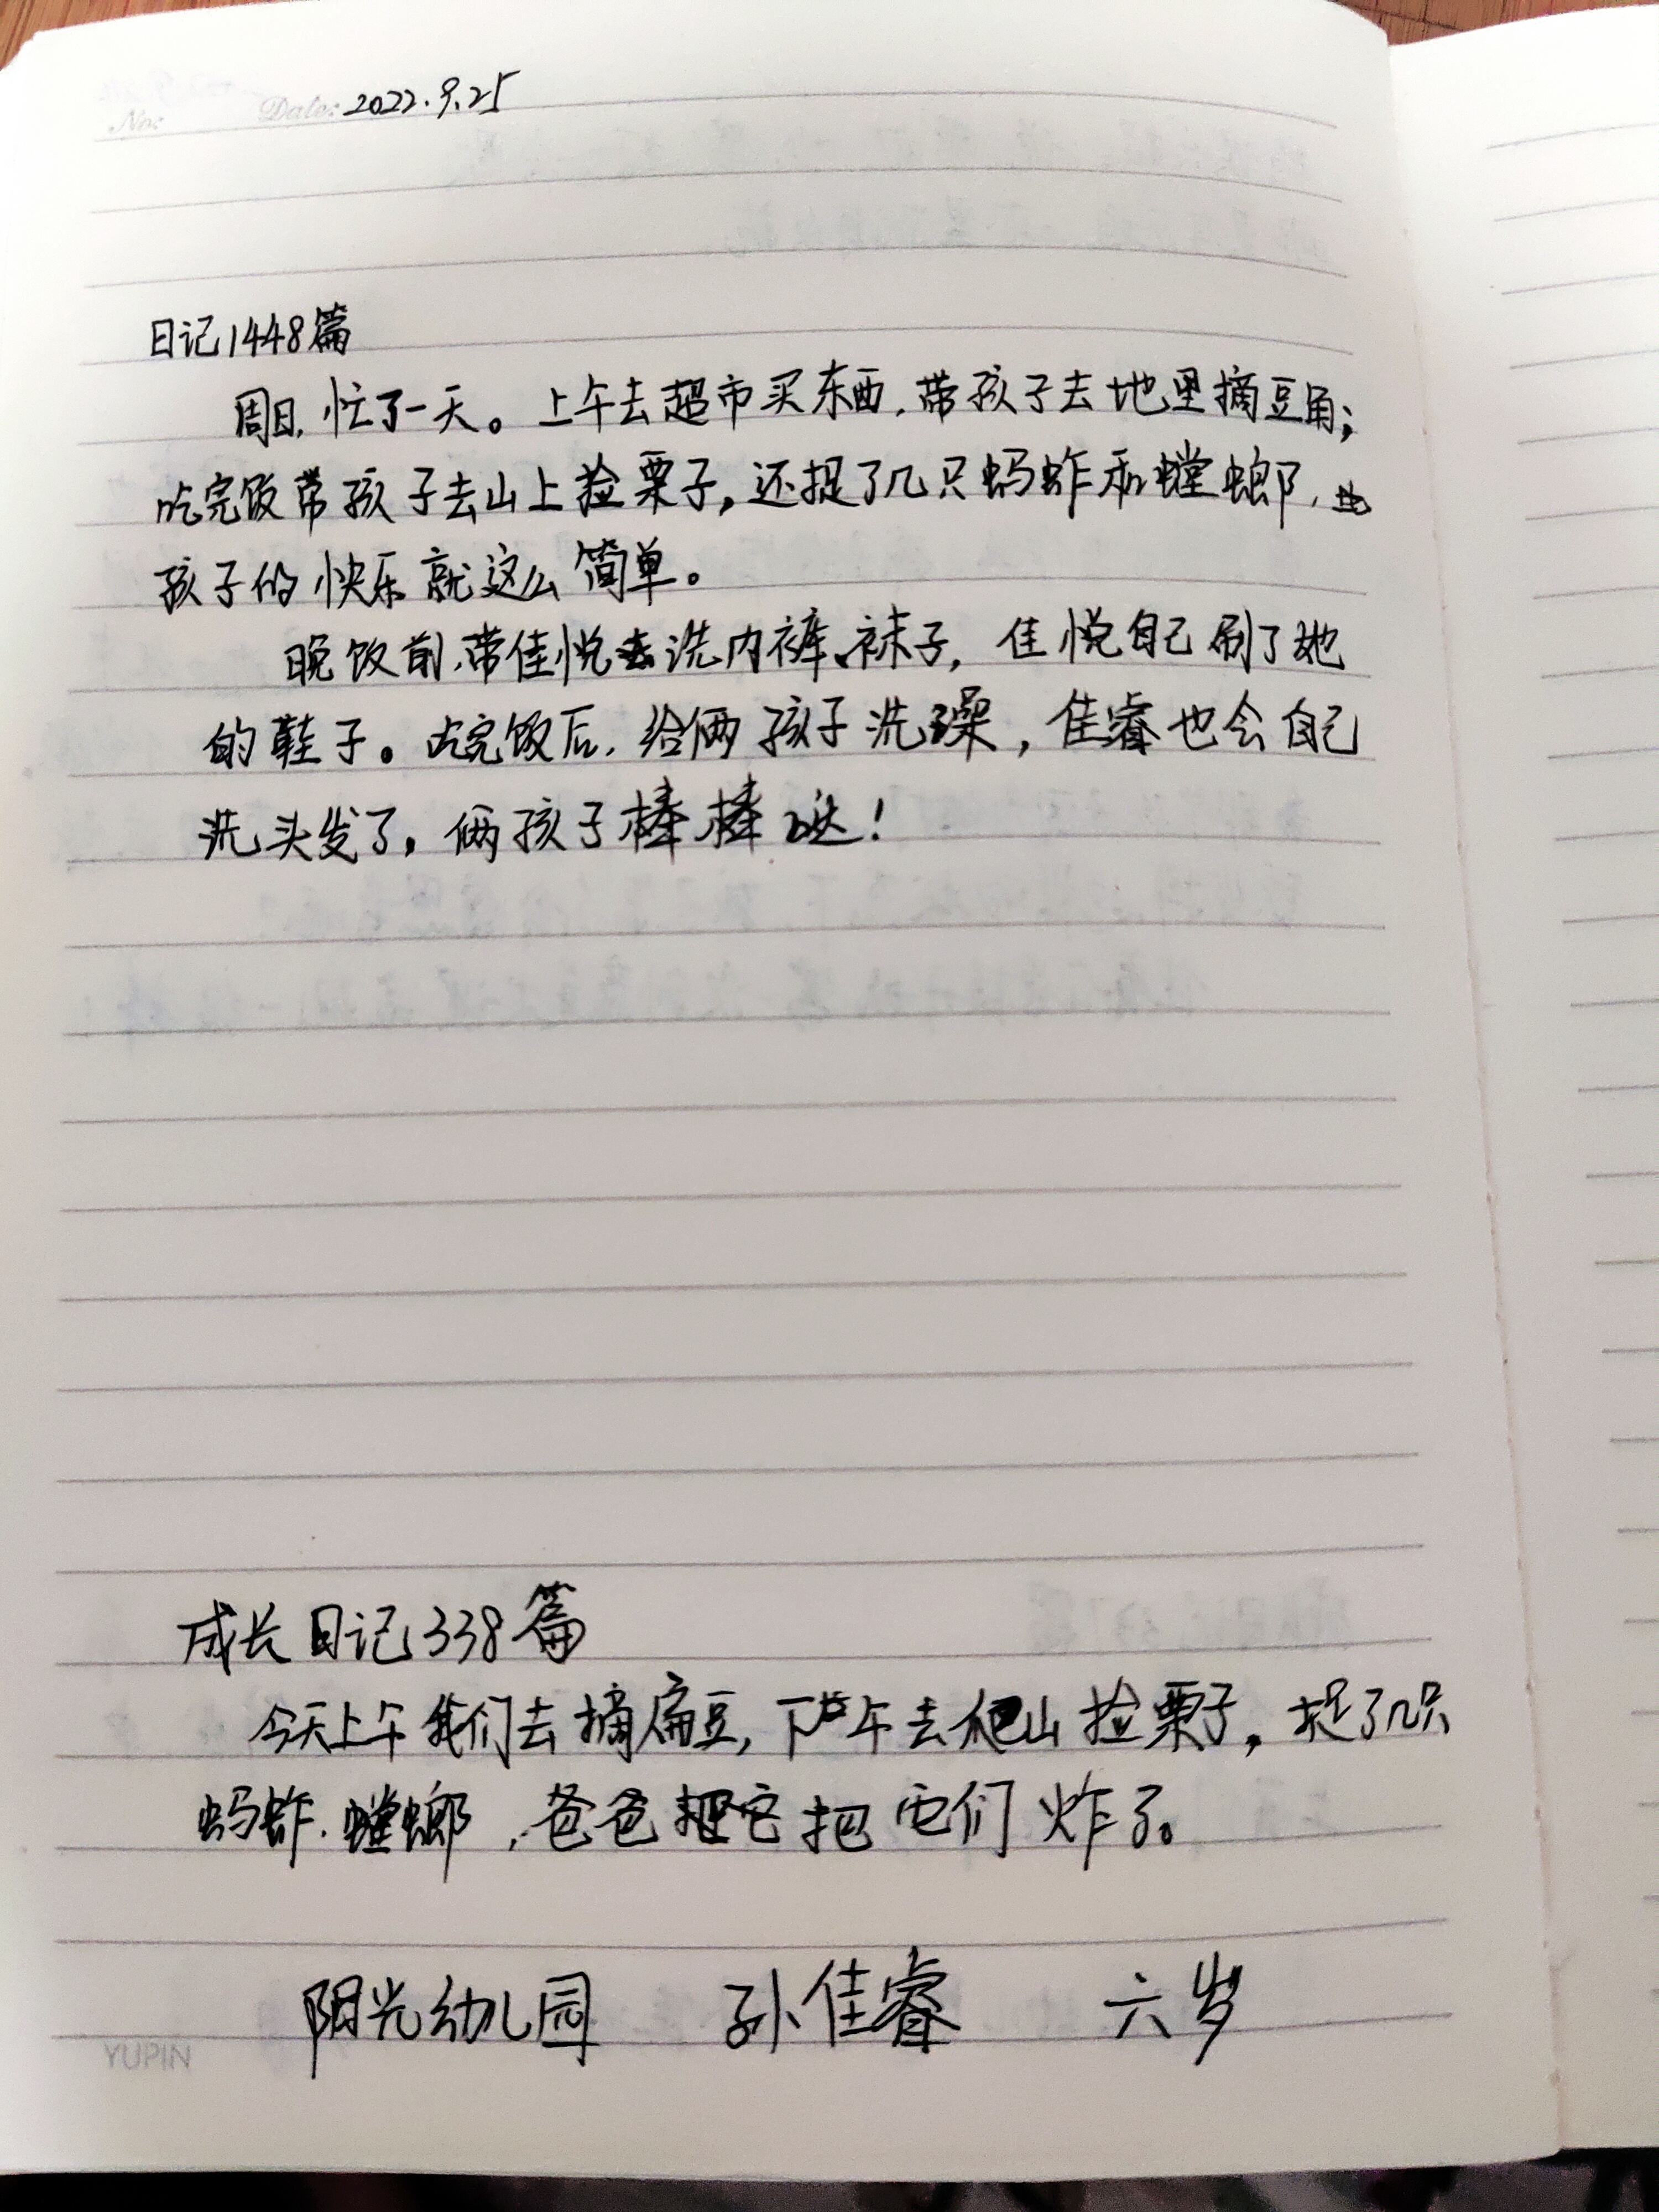 No: Date: 2022.9.25
日记1448篇
周日,忙了一天。上午去超市买东西,带孩子去地里摘豆角;
吃完饭带孩子去山上捡栗子,还捉了几只蚂蚱和螳螂,
孩子的快乐就这么简单。
晚饭前,带佳悦去洗内裤、袜子,佳悦自己刷了她
的鞋子。吃完饭后,给俩孩子洗澡,佳睿也会自己
洗头发了,俩孩子棒棒哒!
成长日记338篇
今天上午我们去摘扁豆,下午去爬山捡栗子,捉了几只
蚂蚱、螳螂,爸爸把它们炸了。
阳光幼儿园 孙佳睿 六岁
YUPIN